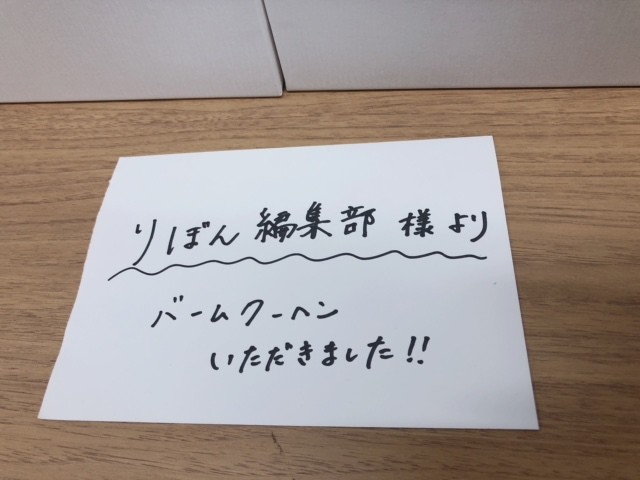 りぼん編集部 様より
バームクーヘン
いただきました!!